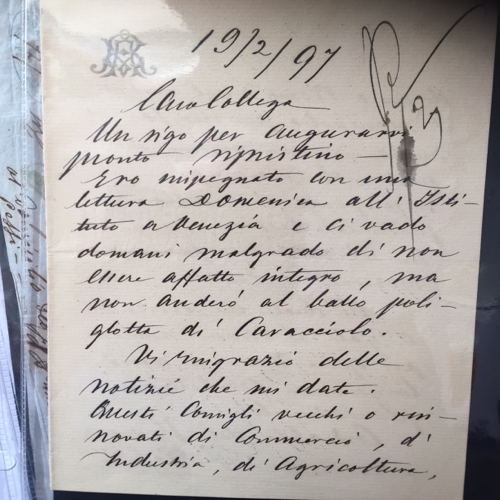 19/2/97
Caro Collega
Un rigo per augurarvi
pronto ripristino —
Ero impegnato con una
lettura Domenica all' Isti-
tuto a Venezia e ci vado
domani malgrado di non
essere affatto integro, ma
non anderó al ballo poli-
glotta di Caracciolo.
Vi ringrazio delle
notizie che mi date.
Questi Consigli vecchi o rin-
novati di Commercio, d'
Industria, di Agricoltura,